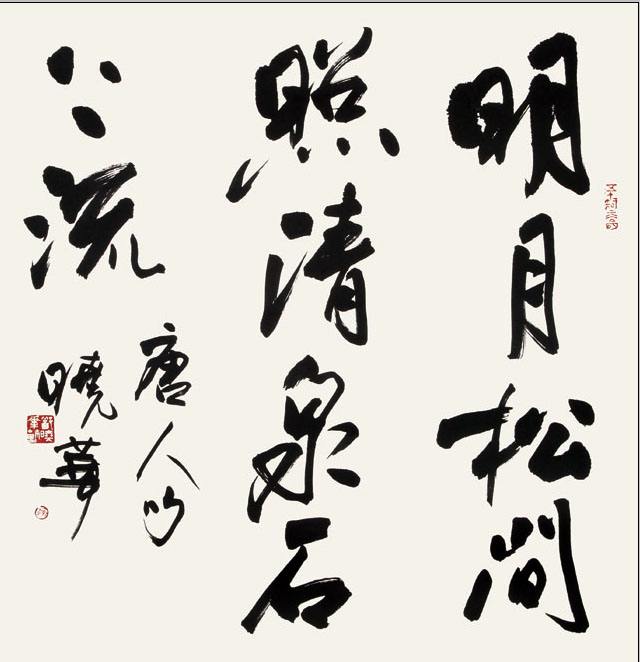 明月松間
照清泉石
上流
唐人句
曉華